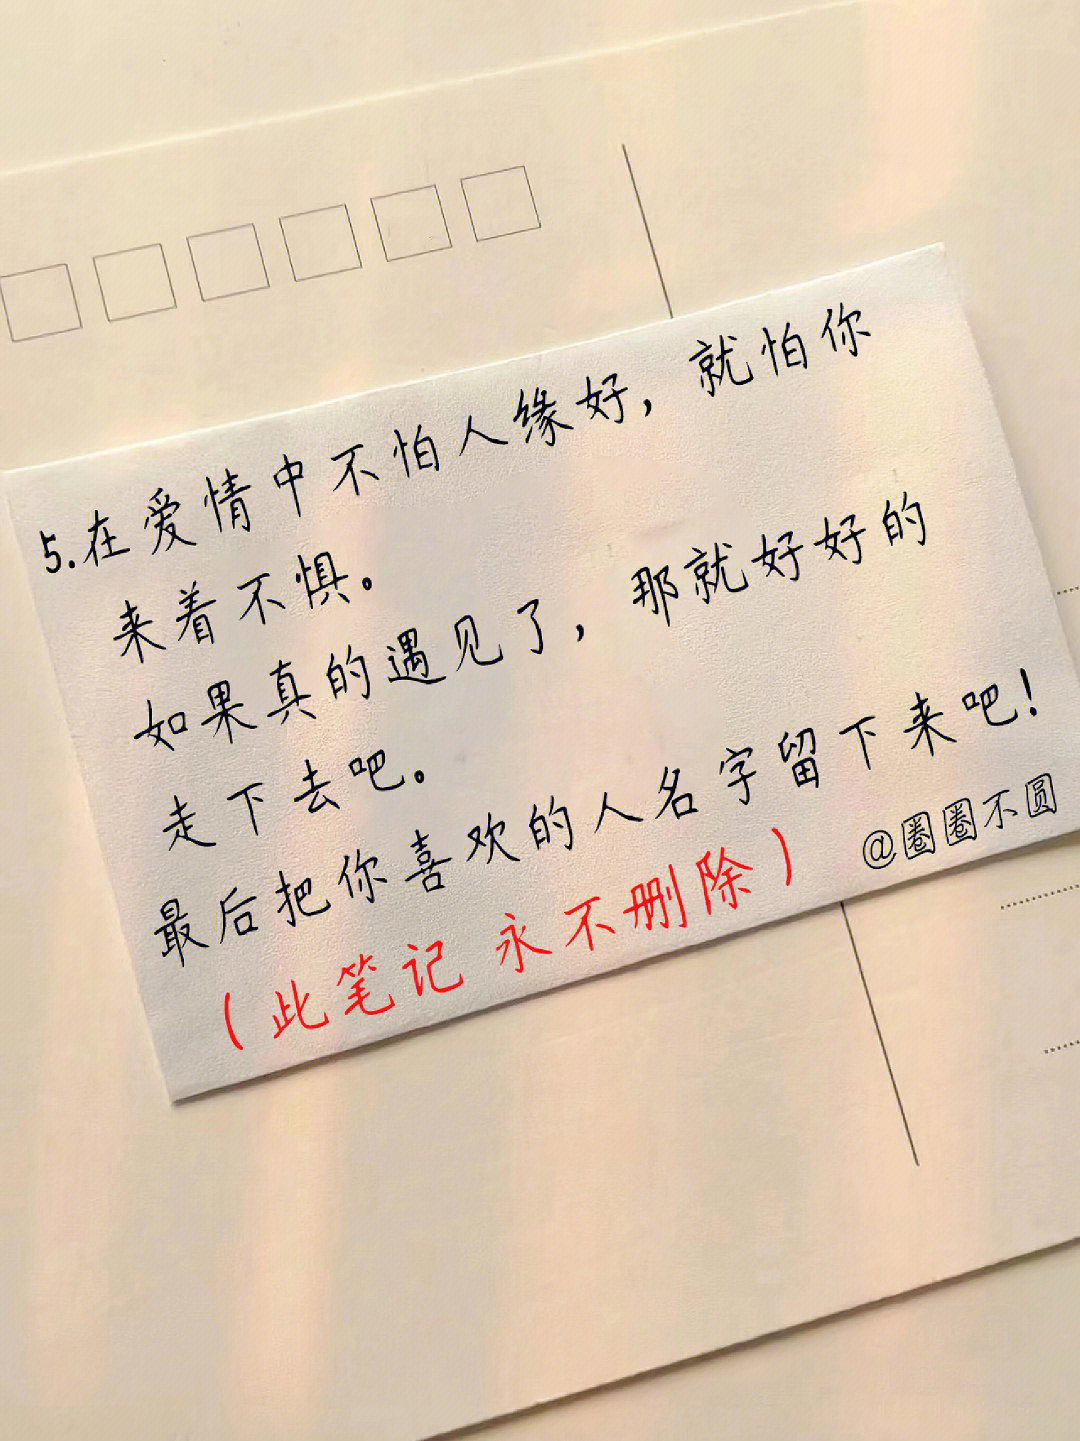 5.在爱情中不怕人缘好，就怕你
来着不惧。
如果真的遇见了，那就好好的
走下去吧。
最后把你喜欢的人名字留下来吧！
（此笔记 永不删除）
@圈圈不圆